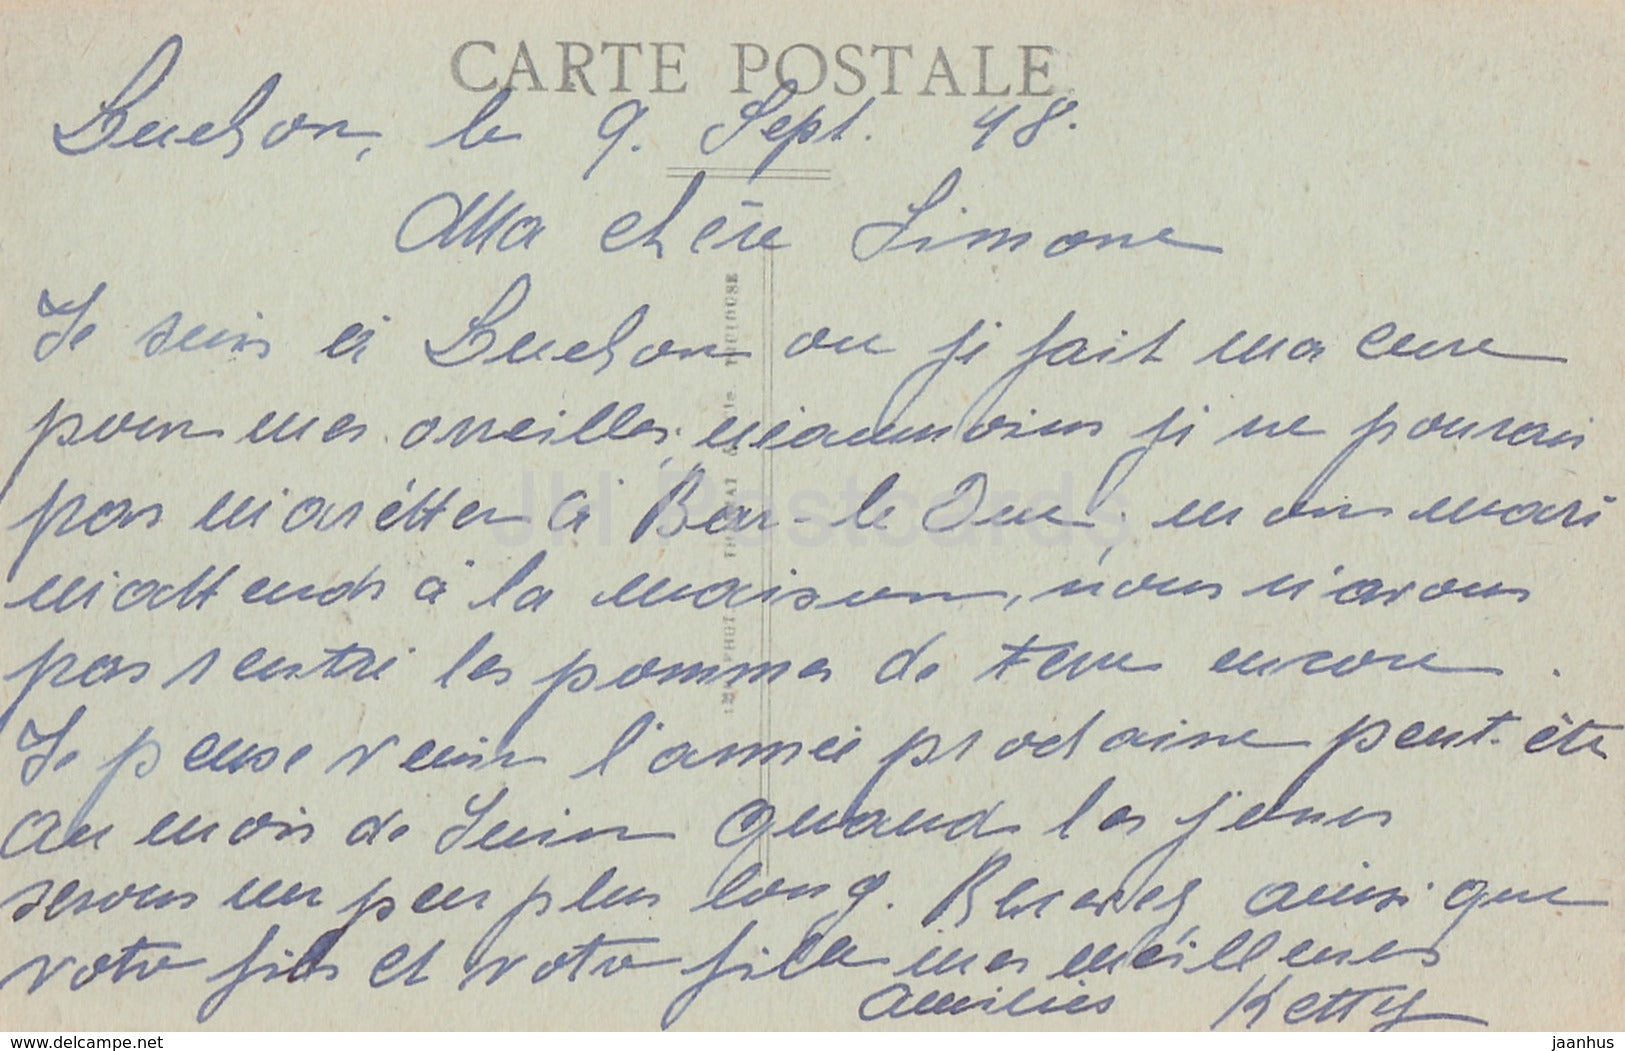 CARTE POSTALE
Luchon, le 9. Sept. 48.
Ma chère Simone
Je suis à Luchon ou je fait ma cure
pour mes oreilles, néaumoins je ne pourais
pas m'arêtter à Bar-le Duc, mon mari
m'attends à la maison, nous n'avons
pas rentré les pommes de terre encore.
Je pense venir l'année prochaine peut-être
au mois de Juin quand les jours
serons un peu plus long. Recevez ainsi que
votre fils et votre fille mes meilleures
amitiés Ketty
TOULOUSE
JH Postcards
www.delcampe.net
jaanhus